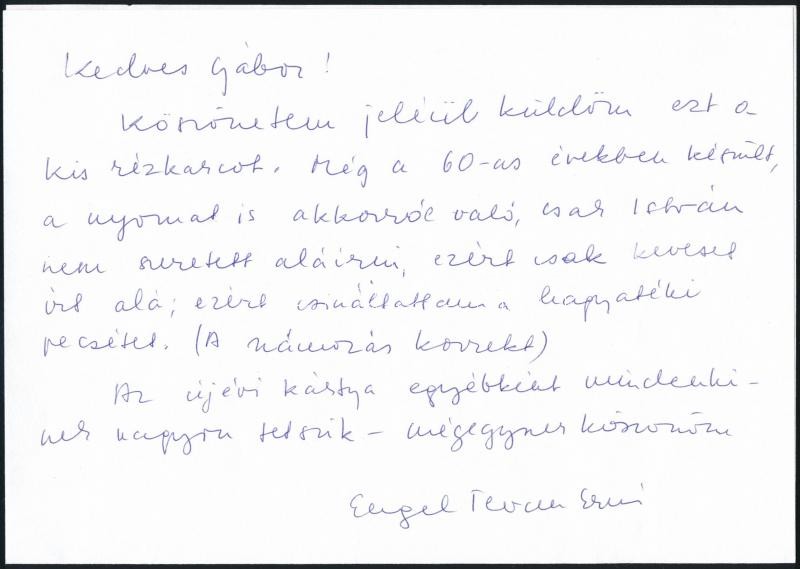 Kedves Gábor!
Köszönetem jeléül küldöm ezt a
kis rézkarcot. Még a 60-as években készült,
a nyomat is akkorról való, csak István
nem szeretett aláírni, ezért csak keveset
írt alá; ezért csináltattam a hagyatéki
pecsétet. (A számozás korrekt)
Az újévi kártya egyébként mindenki-
nek nagyon tetszik – mégegyszer köszönöm
Engel Tevan